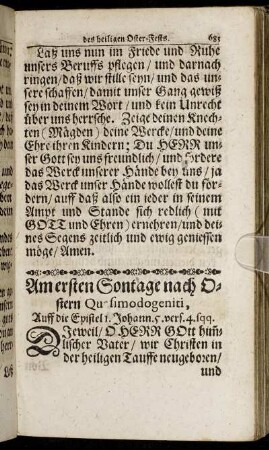 des heiligen Oster-Fests. 685
Laß uns nun im Friede und Ruhe
unsers Beruffs pflegen/ und darnach
ringen/ daß wir stille seyn/ und das un-
sere schaffen/ damit unser Gang gewiß
sey in deinem Wort/ und kein Unrecht
über uns herrsche. Zeige deinen Knech-
ten (Mägden) deine Wercke/ und deine
Ehre ihren Kindern: Du HERR un-
ser Gott sey uns freundlich/ und fördere
das Werck unserer Hände bey uns/ ja
das Werck unser Hände wollest du för-
dern/ auff daß also ein ieder in seinem
Ampt und Stande sich redlich (mit
GOTT und Ehren) ernehren/ und dei-
nes Segens zeitlich und ewig geniessen
möge/ Amen.
Am ersten Sontage nach O-
stern Quasimodogeniti,
Auff die Epistel 1. Johann. 5. vers. 4. sqq.
DJeweil/ O HERR GOtt him̃-
lischer Vater/ wir Christen in
der heiligen Tauffe neugeboren/
und